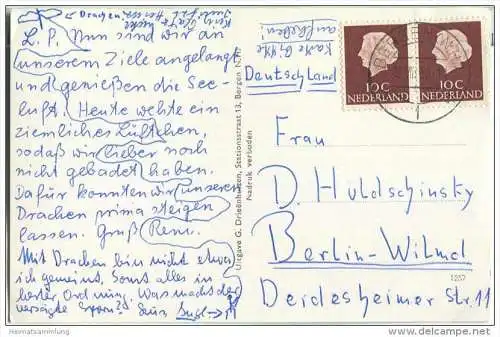 Drachen!
L. P. Nun sind wir an
unserem Ziele angelangt
und genießen die See-
luft. Heute wehte ein
ziemliches Lüftchen,
sodaß wir lieber noch
nicht gebadet haben.
Dafür konnten wir unseren
Drachen prima steigen
lassen. Gruß Renn.
Mit Drachen bin nicht etwa
ich gemeint. Sonst alles in
bester Ordnung. Was macht der
Uitgave G. Driebhuizen, Stationsstraat 13, Bergen N.H.
Nadruk verboden
Karte
aufheben!
Deutschland
10C
NEDERLAND
10C
NEDERLAND
Frau
D. Huldschinsky
Berlin-Wilmd
Deidesheimer Str. 11
1257
Heimatsammlung
www.heimatsammlung.de